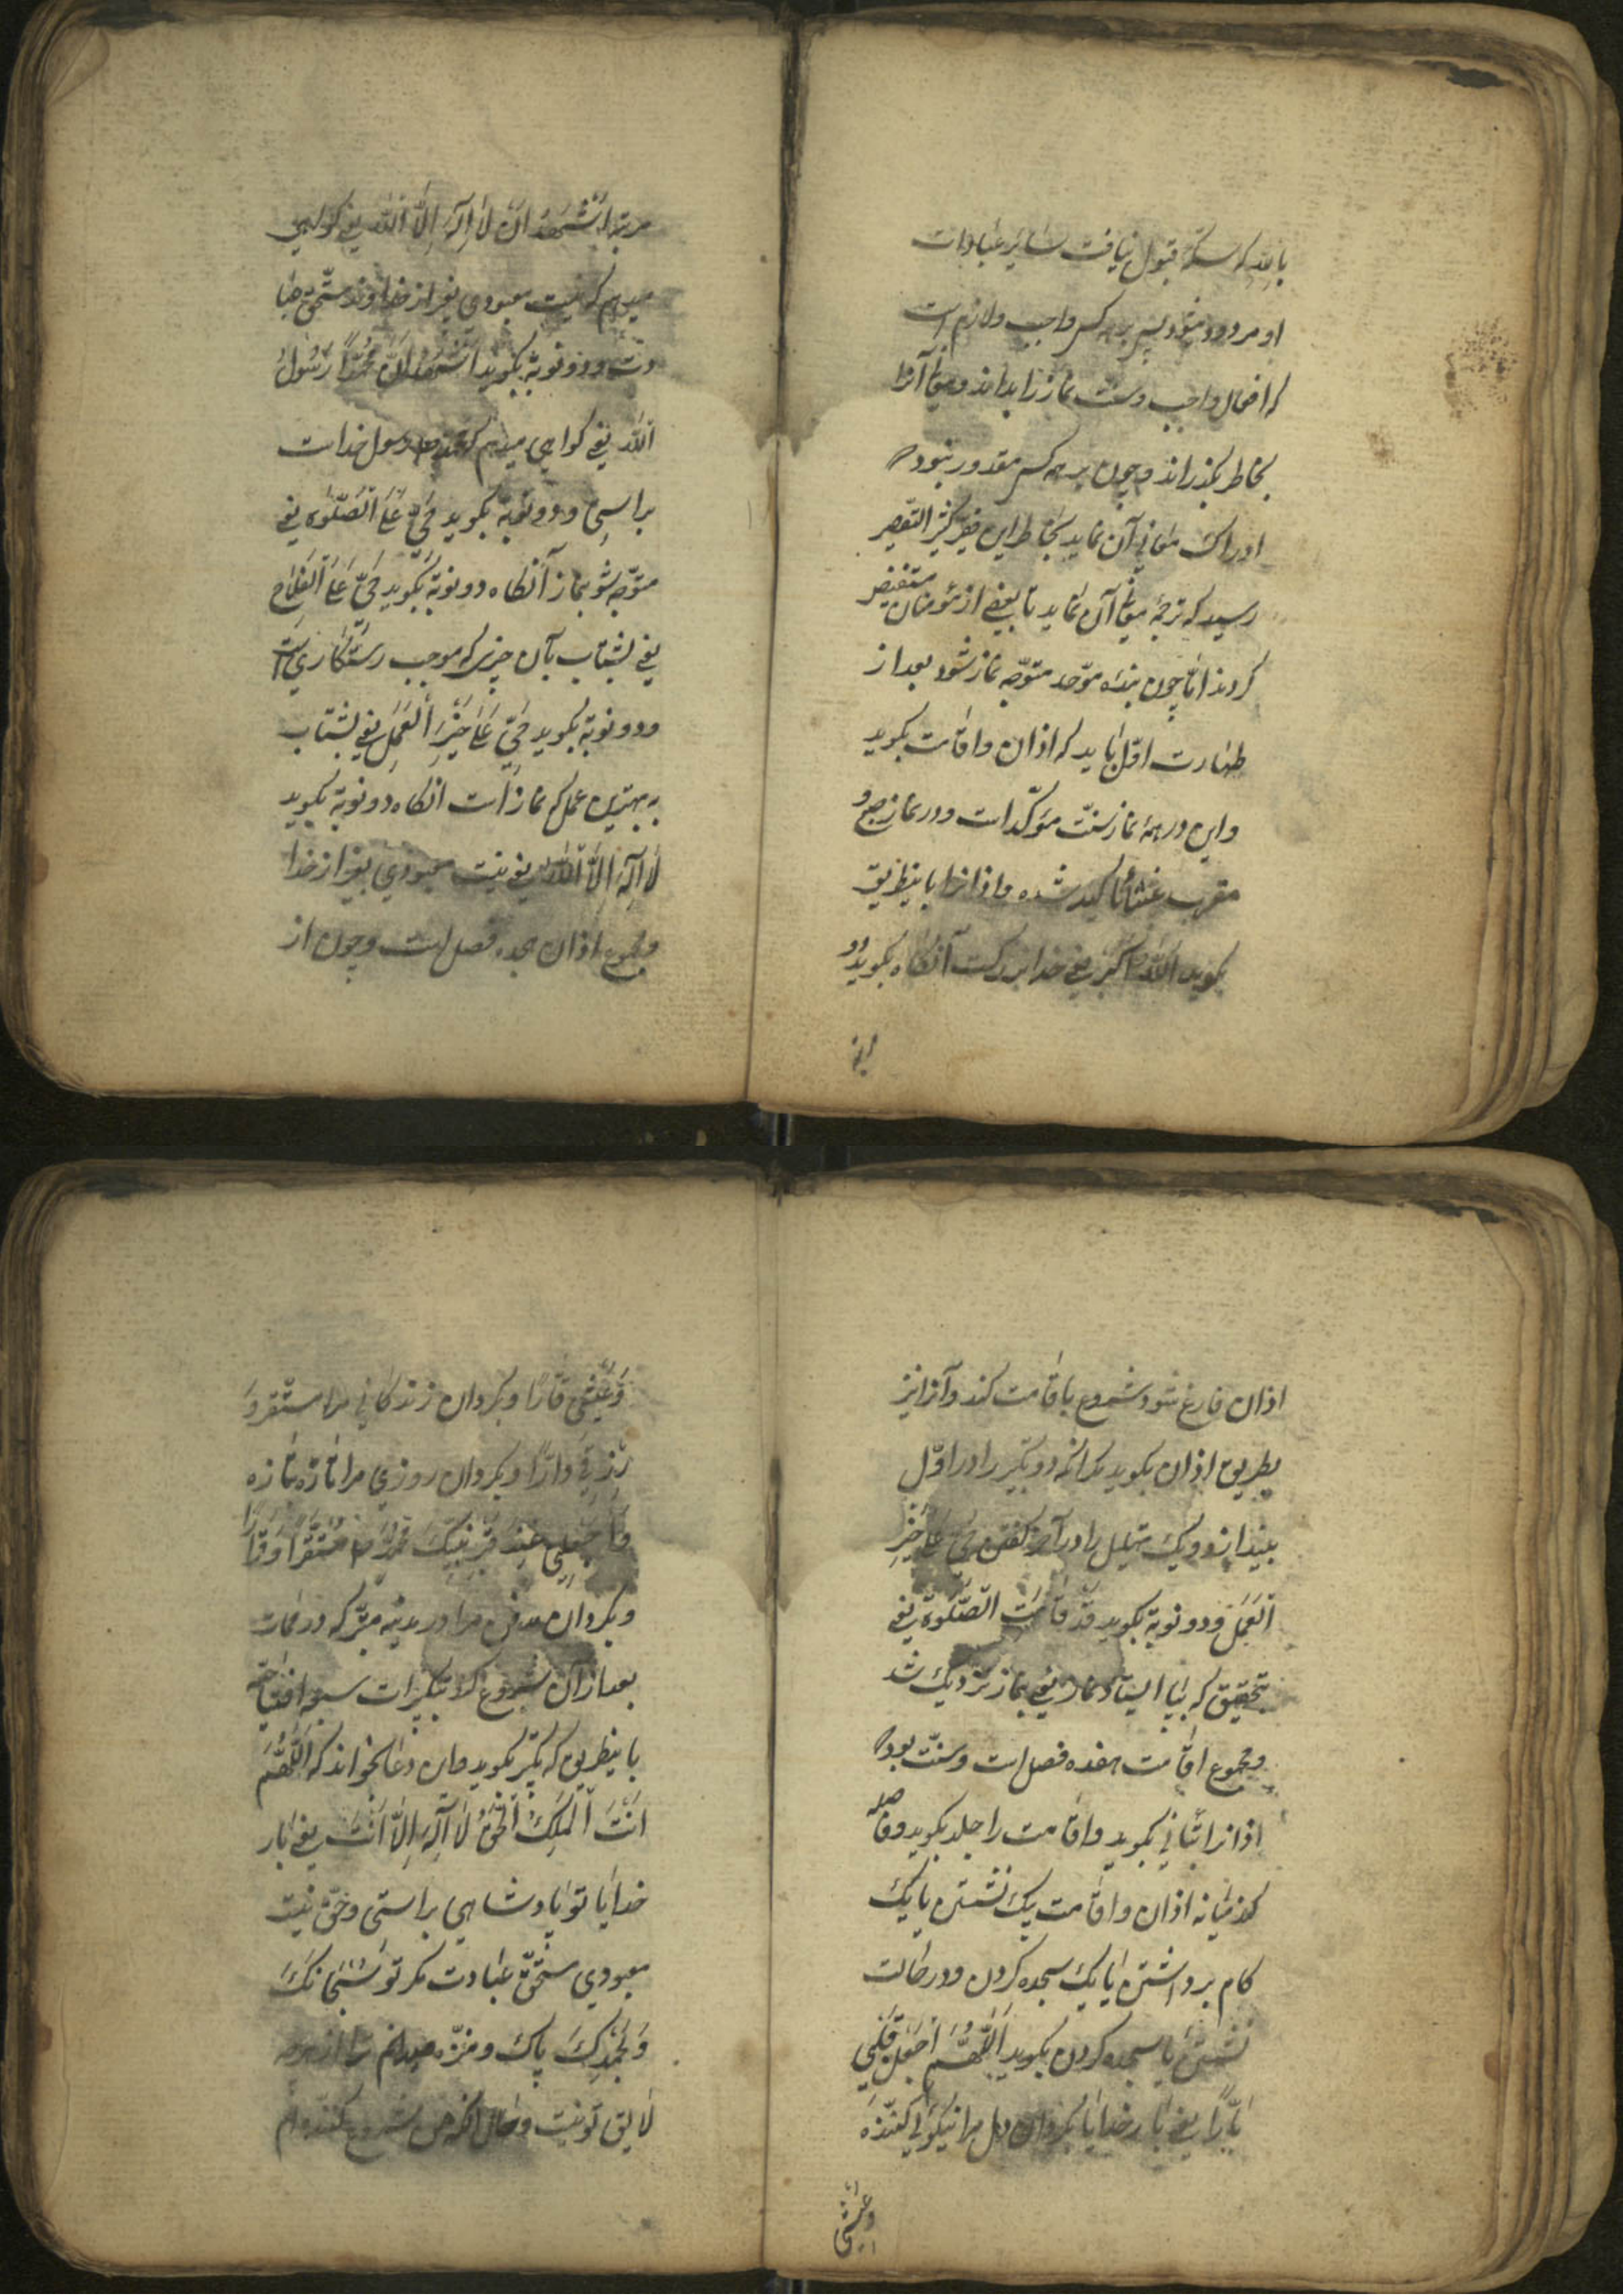 بابد که سکهٔ قبول نیافت سایر عبادات
او مردود شود پس بر همه کس واجب و لازم است
که افعال واجب و سنت نماز را بداند و معانی آنرا
بخاطر بگذراند و چون بر همه کس مقدور نبود که
ادراک معانی آن نماید بخاطر این فقیر کثیر التقصیر
رسید که ترجمهٔ معانی آن نماید تا بعضی از مؤمنان مستفیض
کردند امّا چون بنده موحّد متوجّه نماز شود بعد از
طهارت اوّل باید که اذان و اقامت بکوید
و این در همهٔ نماز سنّت مؤکّد است و در نماز صبح و
مغرب عشا تأکید شده و اذانرا باینطریق
بکوید اللّه اکبر یعنی خدا بزرکست آنکاه بکوید دو
مرتبه
مرتبه اَشْهَدُ اَنْ لَا اِلٰهَ اِلَّا اللّٰه یعنی کواهی
میدهم که نیست معبودی بغیر از خداوند مستحق عبا
دت و دو نوبة بکوید اَشْهَدُ اَنَّ مُحَمَّدًا رَسُولُ
اللّٰه یعنی کواهی میدهم که محمّد رسول خداست
براستی و دو نوبة بکوید حَیَّ عَلَی الصَّلٰوة یعنی
متوجّه شو بنماز آنکاه دو نوبة بکوید حَیَّ عَلَی الْفَلَاح
یعنی بشتاب بآن چیزی که موجب رستکاری است
و دو نوبة بکوید حَیَّ عَلٰی خَیْرِ الْعَمَلِ یعنی بشتاب
به بهترین عمل که نماز است انکاه دو نوبة بکوید
لَا اِلٰهَ اِلَّا اللّٰه یعنی نیست معبودی بغیر از خدا
و مجموع اذان هجده فصل است و چون از
اذان فارغ شود شروع باقامت کند و آنرا نیز
بطریق اذان بکوید مکر انکه دو تکبیر را در اوّل
بیندازد و یک تهلیل را در آخر کفتن حَیَّ عَلٰی خَیْرِ
الْعَمَل و دو نوبة بکوید قَدْ قَامَتِ الصَّلٰوة یعنی
بتحقیق که بپا ایستاد نماز یعنی نماز نزدیک شد
و مجموع اقامت هفده فصل است و سنّت بود که
اذانرا بتأنی بکوید و اقامت را جلد بکوید و فاصله
کند میانه اذان و اقامت بیک نشستن یا یک
کام برداشتن یا یک سجده کردن و در حالت
نشستن یا سجده کردن بکوید اَللّٰهُمَّ اجْعَلْ قَلْبِی
بَارًّا یعنی بار خدایا بکردان دل مرا نیکویی کننده
وَعَیْشِی
وَعَیْشِی قَارًّا و بکردان زندکانی مرا مستقر وَ
رِزْقِی دَارًّا و بکردان روزی مرا تازه بتازه
وَاجْعَلْ لِی عِنْدَ قَبْرِ نَبِیِّکَ مُحَمَّدٍ مُسْتَقَرًّا وَقَرَارًا
و بکردان مدفن مرا در مدینه متبرکه در ممات
بعد از آن شروع کند تکبیرات سبعه افتتاحیّه
باینطریق که تکبیر بکوید و این دعا بخواند که اَللّٰهُمَّ
اَنْتَ الْمَلِکُ الْحَقُّ لَا اِلٰهَ اِلَّا اَنْتَ یعنی بار
خدایا تو پادشاهی براستی و حق نیست
معبودی مستحقّ عبادت مکر تو سُبْحَانَکَ
وَبِحَمْدِکَ پاک و منزّه میدانم ترا از هر چه
لایق تو نیست و حال آنکه من شروع کننده ام